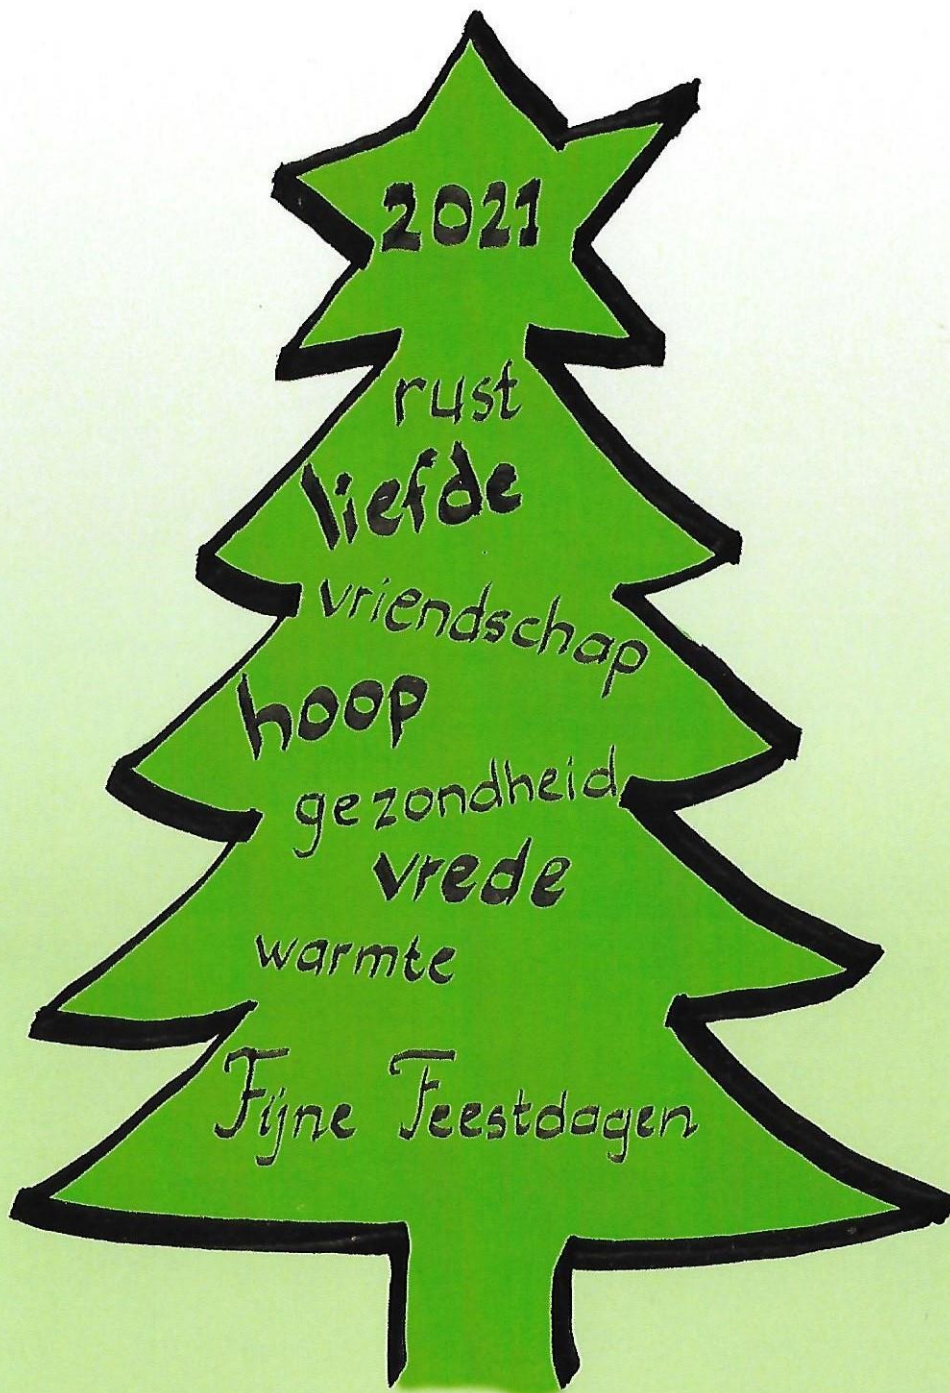 2021
rust
liefde
vriendschap
hoop
gezondheid
vrede
warmte
Fijne Feestdagen